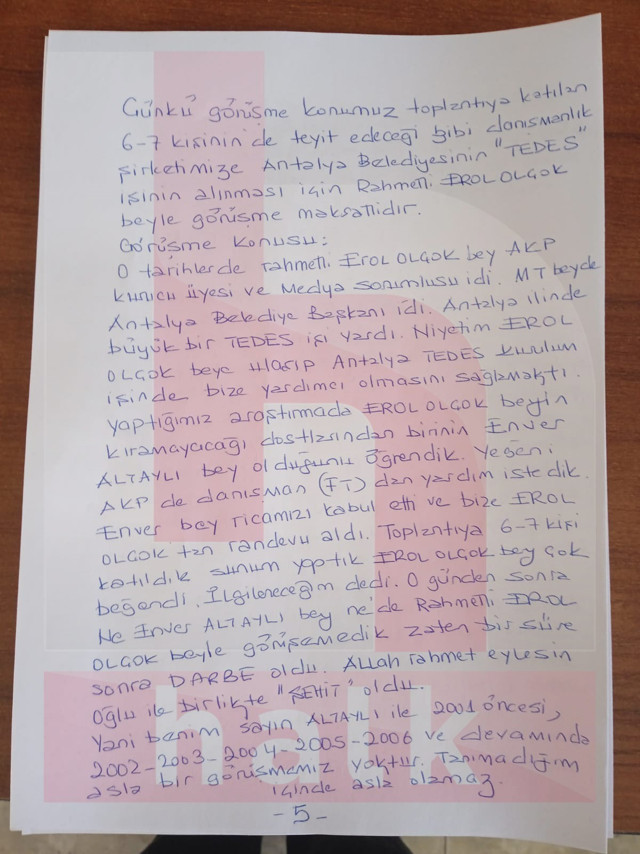 Günkü görüşme konumuz toplantıya katılan
6-7 kişinin de teyit edeceği gibi danışmanlık
şirketimize Antalya Belediyesinin "TEDES"
işinin alınması için Rahmetli EROL OLÇOK
beyle görüşme maksatlıdır.
Görüşme konusu:
O tarihlerde rahmetli EROL OLÇOK bey AKP
kurucu üyesi ve Medya sorumlusu idi. MT beyde
Antalya Belediye Başkanı idi. Antalya ilinde
büyük bir TEDES işi vardı. Niyetim EROL
OLÇOK beye ulaşıp Antalya TEDES kurulum
işinde bize yardımcı olmasını sağlamaktı.
yaptığımız araştırmada EROL OLÇOK beyin
kıramayacağı dostlarından birinin Enver
ALTAYLI bey olduğunu öğrendik. Yeğeni
AKP de danışman (FT) dan yardım istedik.
Enver bey ricamızı kabul etti ve bize EROL
OLÇOK tan randevu aldı. Toplantıya 6-7 kişi
katıldık sunum yaptık EROL OLÇOK bey çok
beğendi. İlgileneceğim dedi. O günden sonra
Ne Enver ALTAYLI bey ne'de Rahmetli EROL
OLÇOK beyle görüşemedik zaten bir süre
sonra DARBE oldu. Allah rahmet eylesin
oğlu ile birlikte "ŞEHİT" oldu.
Yani benim sayın ALTAYLI ile 2001 öncesi,
2002-2003-2004-2005-2006 ve devamında
asla bir görüşmemiz yoktur. Tanımadığım
içinde asla olamaz.
-5-
halk